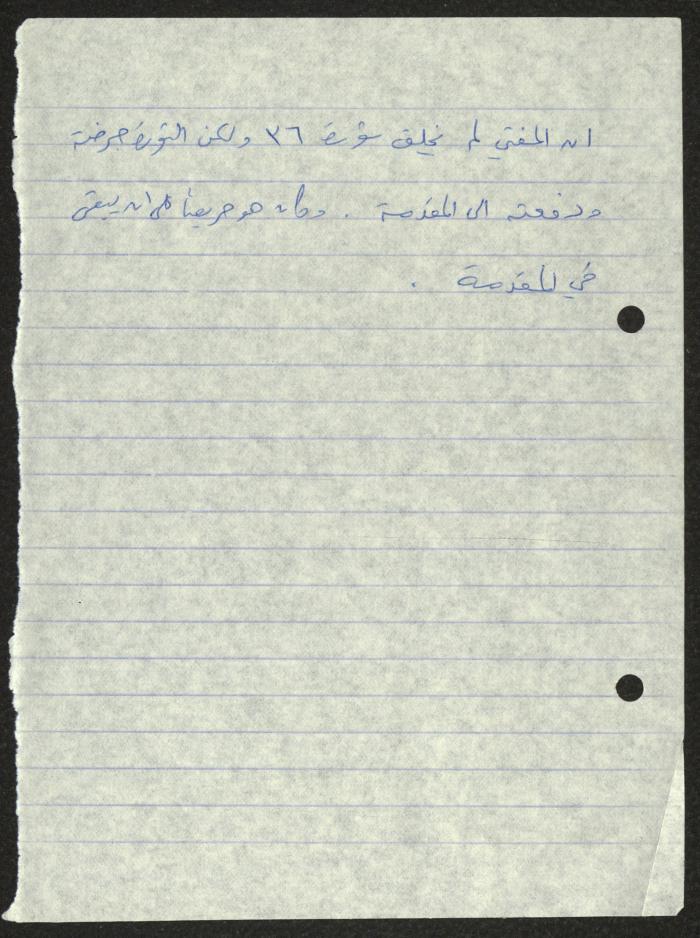 ان المفتي لم يخلق ثورة ٣٦ ولكن الثورة جرفته
ودفعته الى المقدمة . وكان هو حريصاً على ان يبقى
في المقدمة .